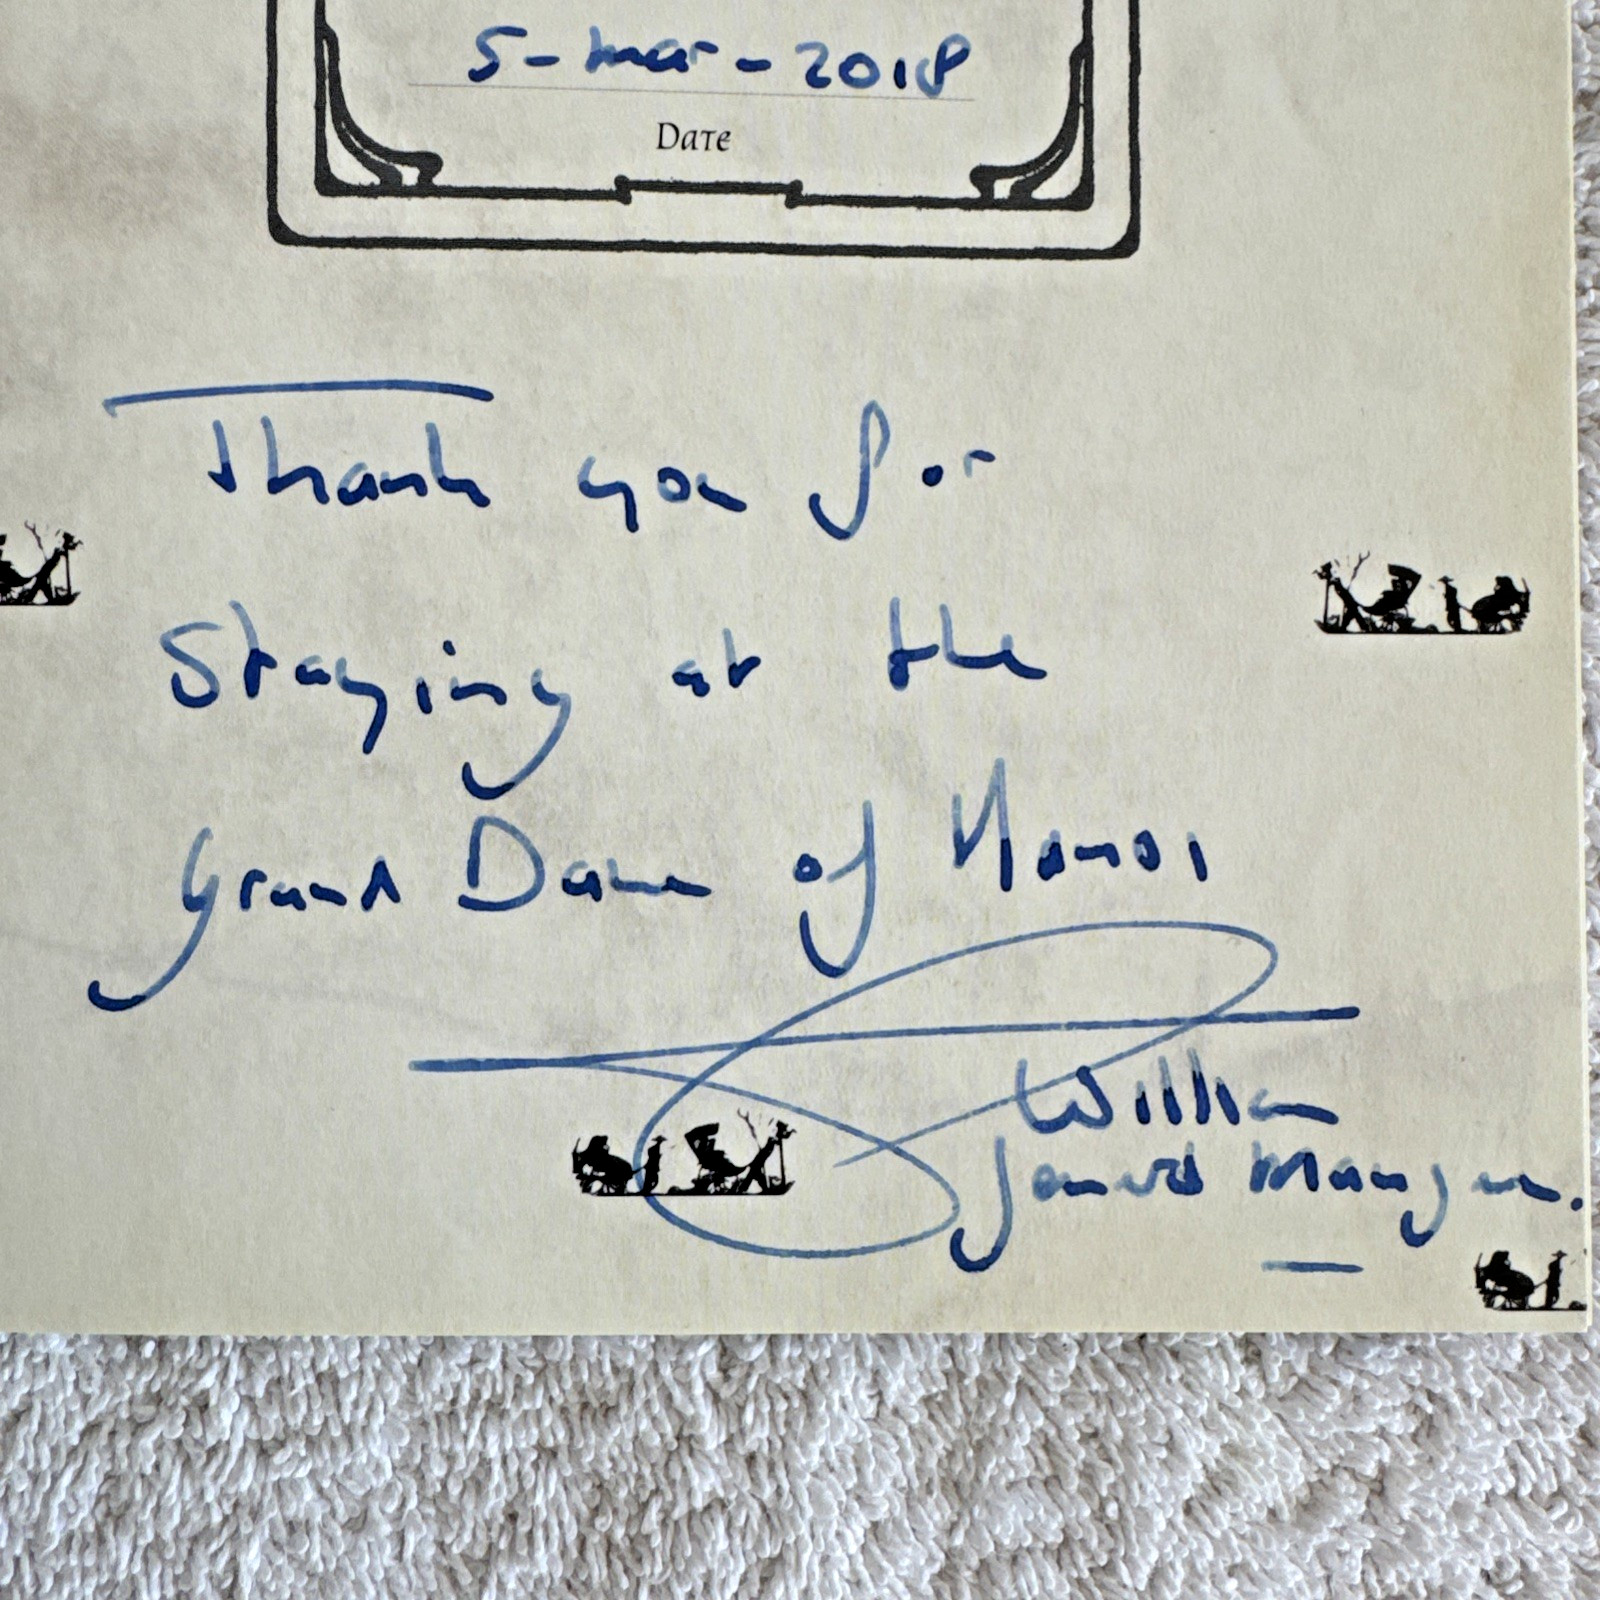 5-mar-2018
Date
Thank you for
Staying at the
Grand Dame of Hanoi
William